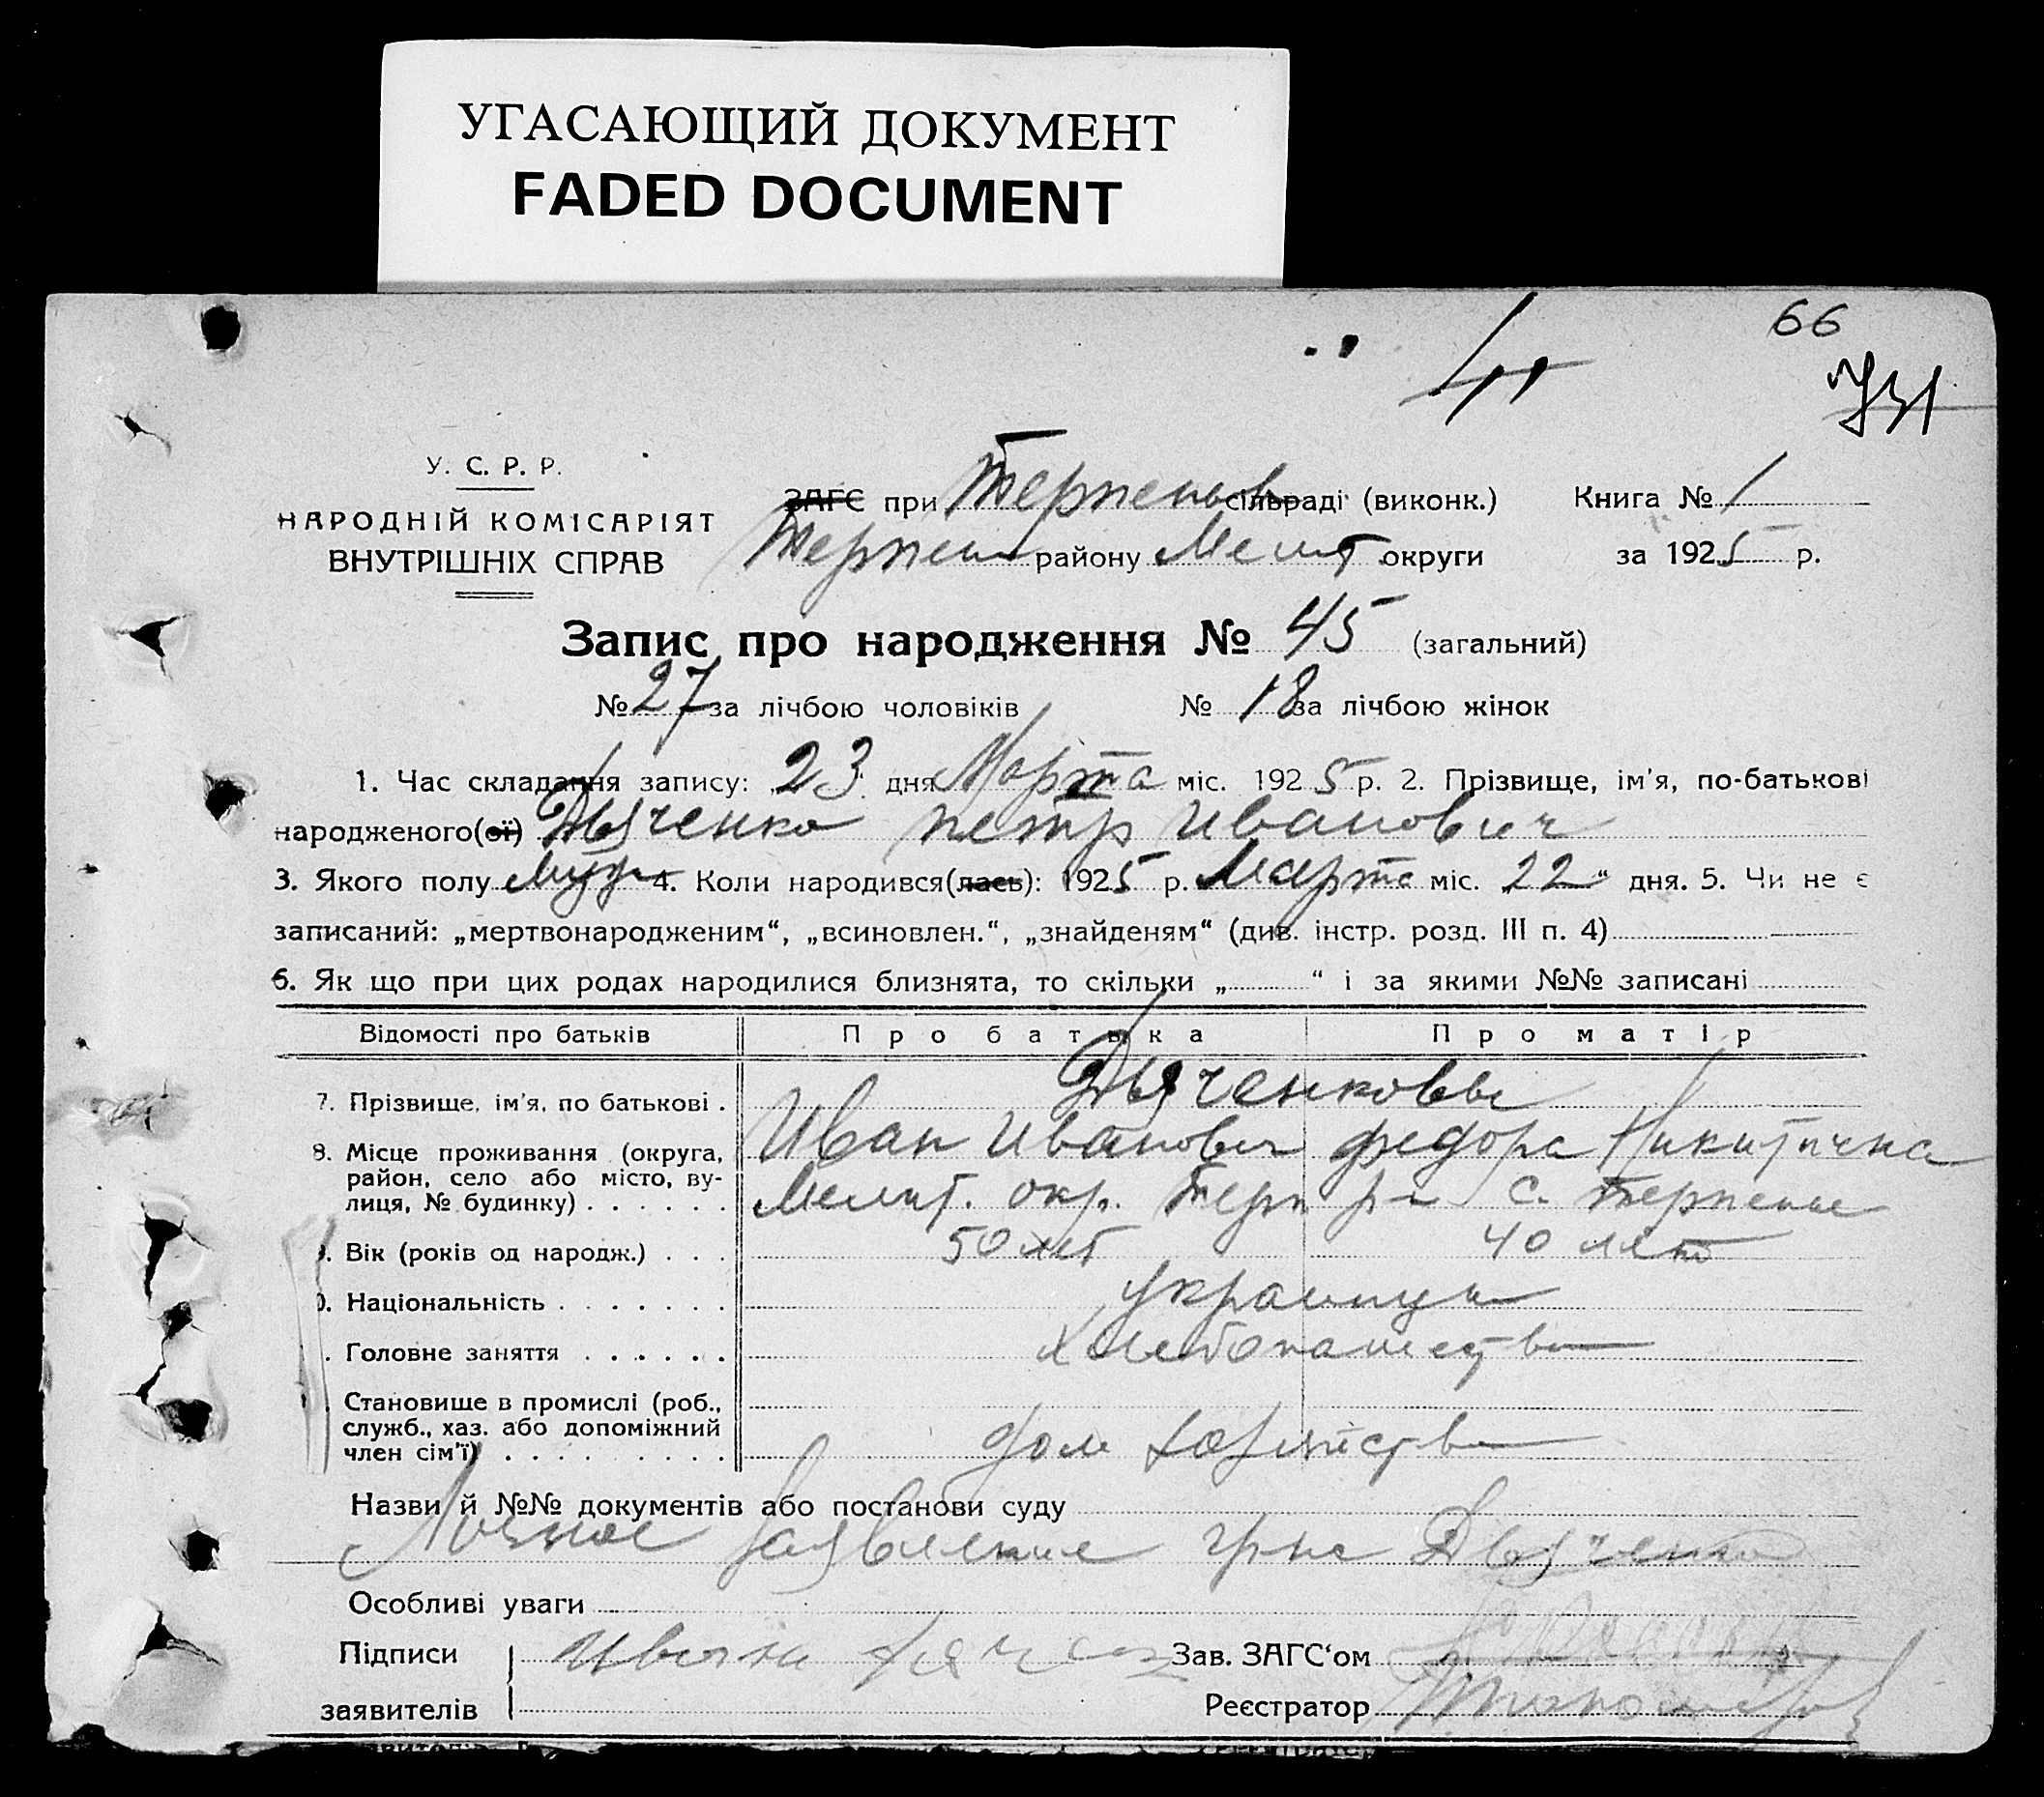 УГАСАЮЩИЙ ДОКУМЕНТ
FADED DOCUMENT
66
У. С. Р. Р.
НАРОДНІЙ КОМІСАРІЯТ
ВНУТРІШНІХ СПРАВ
ЗАГС при Терпеньев сільраді (виконк.) Книга № 1
Терпен району Мелит округи за 1925 р.
Запис про народження № 45 (загальний)
№ 27 за лічбою чоловіків № 18 за лічбою жінок
1. Час складання запису: 23 дня Марта міс. 1925 р. 2. Прізвище, ім'я, по-батькові
народженого(ої) Дьяченко Петр Иванович
3. Якого полу Муж 4. Коли народився(лась): 1925 р. Марта міс. „22“ дня. 5. Чи не є
записаний: „мертвонародженим“, „всиновлен.“, „знайденям“ (див. інстр. розд. III п. 4)
6. Як що при цих родах народилися близнята, то скільки „ “ і за якими №№ записані
Відомості про батьків Про батька Про матір
Дьяченковы
7. Прізвище, ім'я, по батькові .
Иван Иванович Федора Никитична
8. Місце проживання (округа,
район, село або місто, ву-
лиця, № будинку) . . . . . . Мелит. окр. Терп р-н с. Терпение
. Вік (років од народж.) . . . 50 лет 40 лет
0. Національність . . . . . . . украинцы
. Головне заняття . . . . . . хлебопашество
. Становище в промислі (роб.,
служб., хаз. або допоміжний
член сім'ї) . . . . . . . . . дом хозяйство
Назви й №№ документів або постанови суду
Личное заявление гр-на Дьяченко
Особливі уваги
Підписи Зав. ЗАГС'ом
заявителів Реєстратор